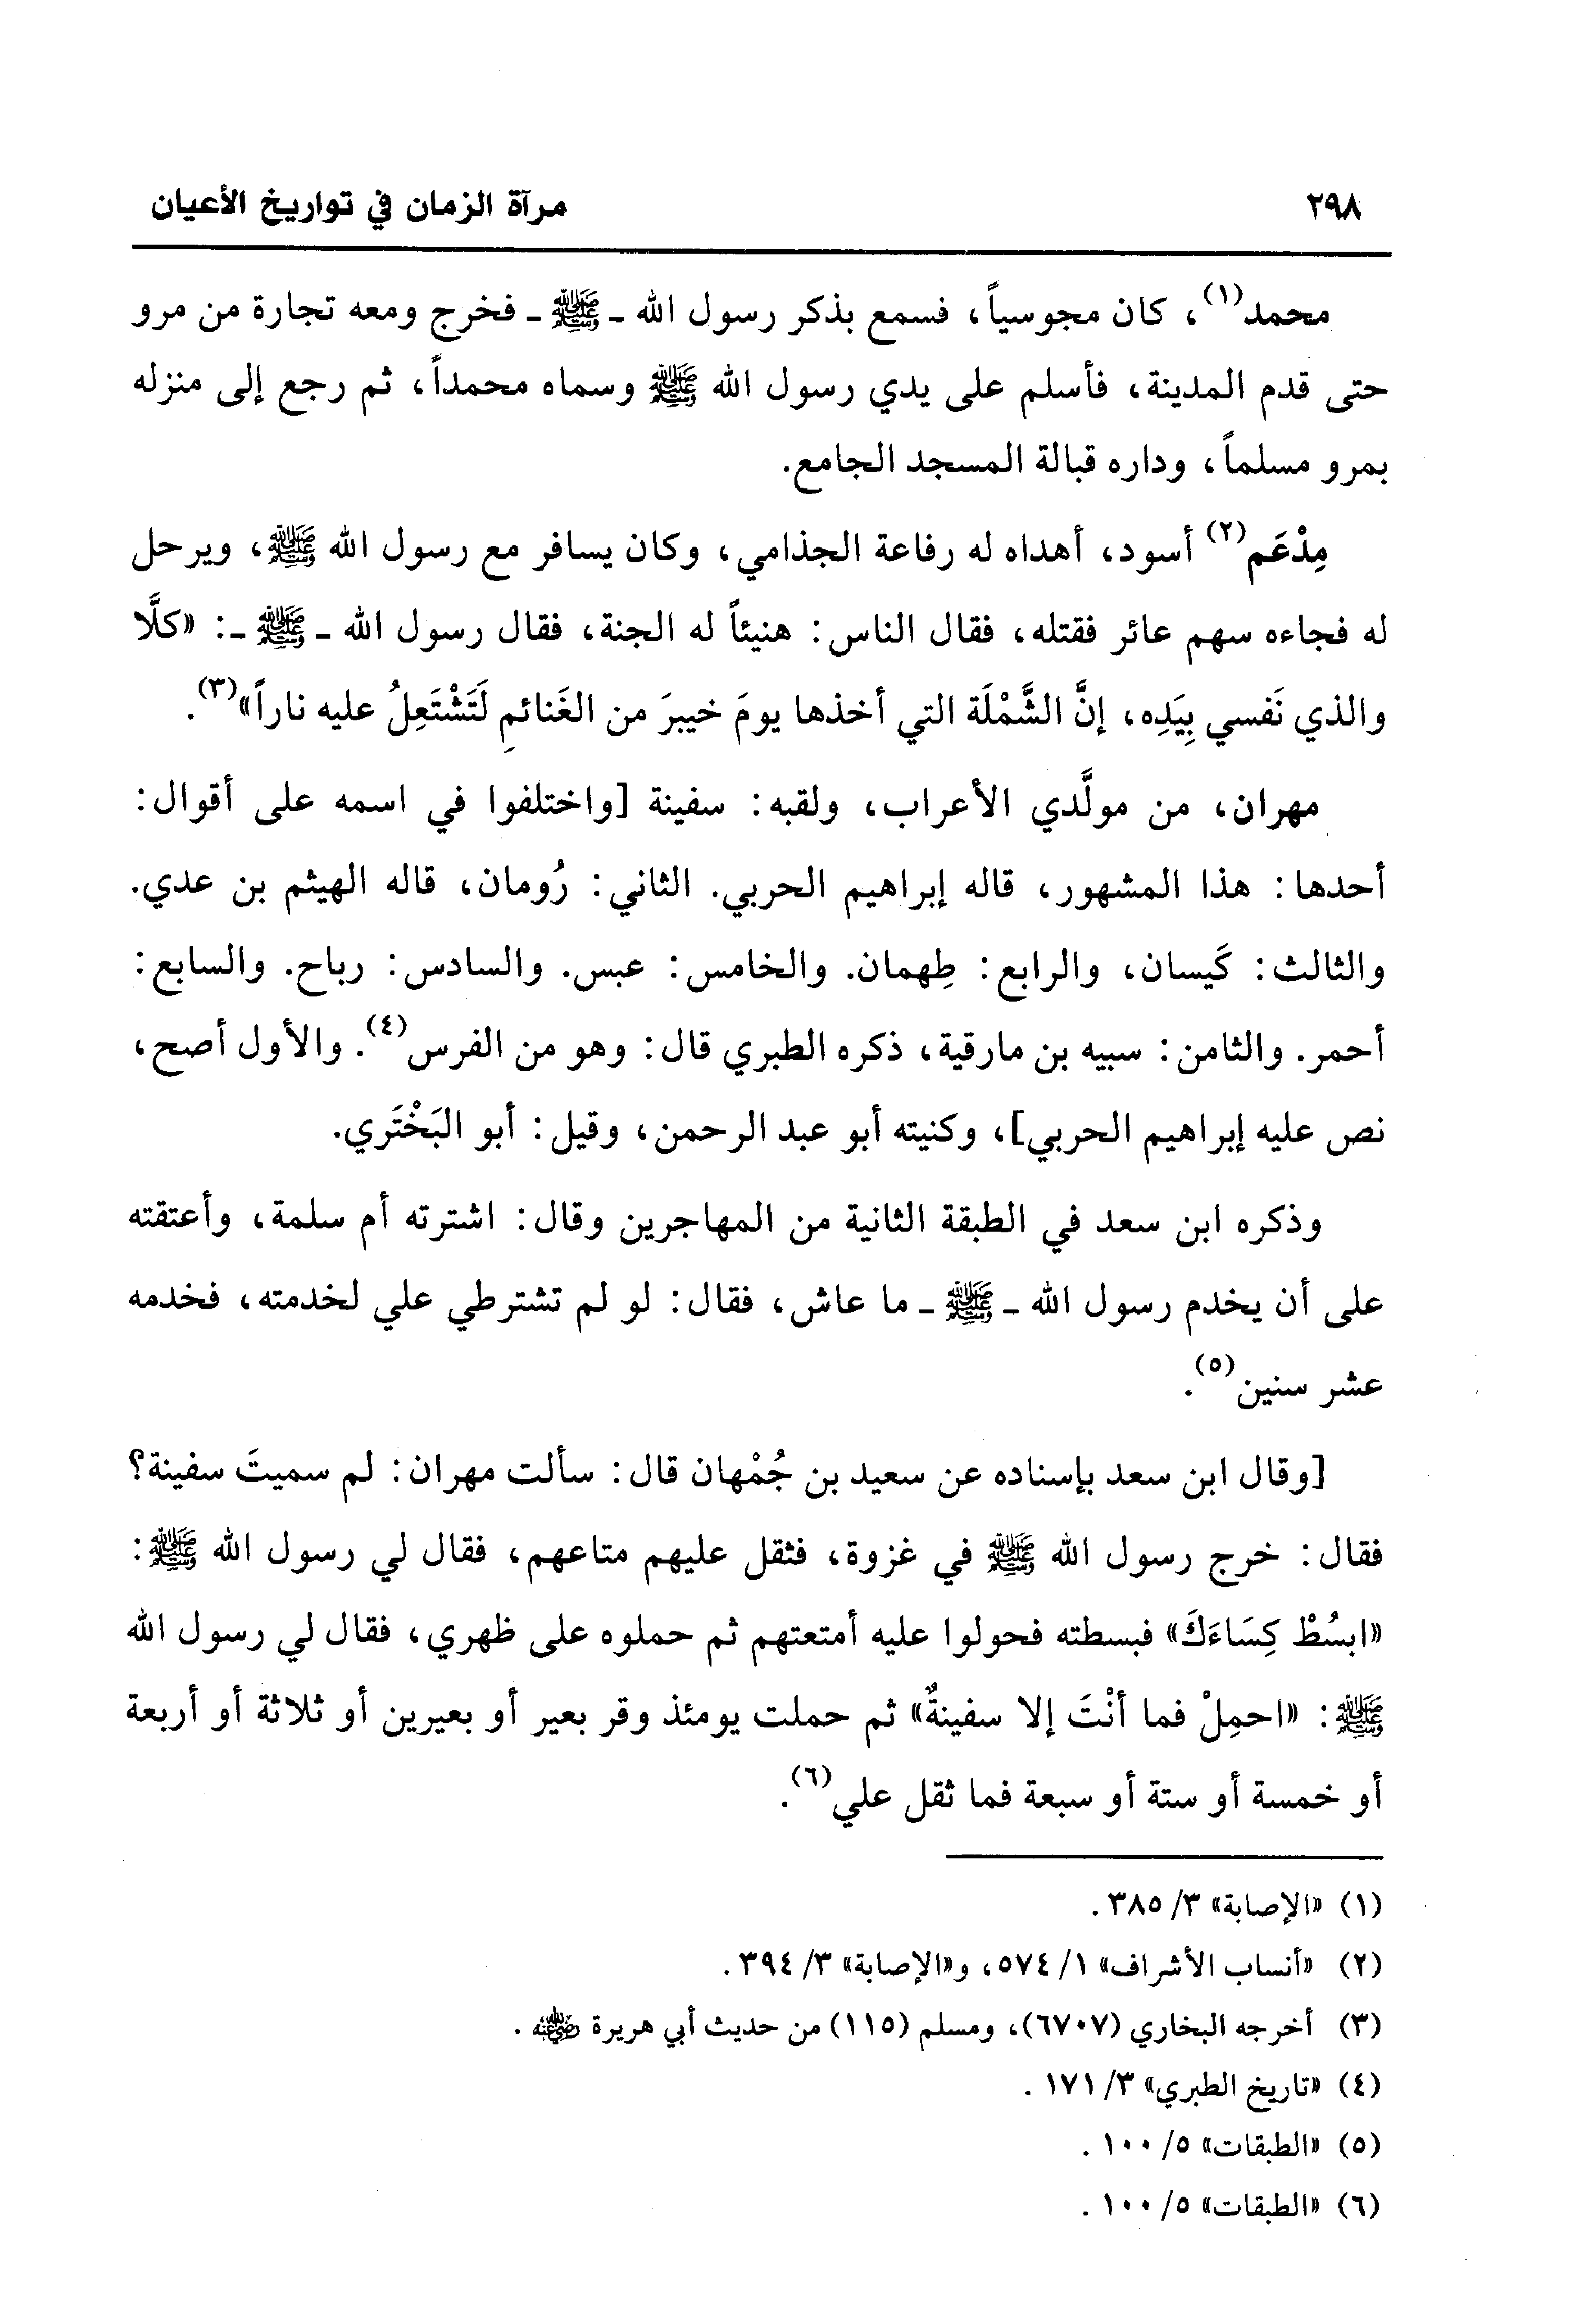 ٢٩٨ مرآة الزمان في تواريخ الأعيان
محمد(١)، كان مجوسياً، فسمع بذكر رسول الله ـ ﷺ ـ فخرج ومعه تجارة من مرو
حتى قدم المدينة، فأسلم على يدي رسول الله ﷺ وسماه محمداً، ثم رجع إلى منزله
بمرو مسلماً، وداره قبالة المسجد الجامع.
مِدْعَم(٢) أسود، أهداه له رفاعة الجذامي، وكان يسافر مع رسول الله ﷺ، ويرحل
له فجاءه سهم عائر فقتله، فقال الناس: هنيئاً له الجنة، فقال رسول الله ـ ﷺ ـ: «كلَّا
والذي نَفسي بِيَدِه، إنَّ الشَّمْلَة التي أخذها يومَ خيبرَ من الغَنائمِ لَتَشْتَعِلُ عليه ناراً»(٣).
مهران، من مولَّدي الأعراب، ولقبه: سفينة [واختلفوا في اسمه على أقوال:
أحدها: هذا المشهور، قاله إبراهيم الحربي. الثاني: رُومان، قاله الهيثم بن عدي.
والثالث: كَيسان، والرابع: طِهمان. والخامس: عبس. والسادس: رباح. والسابع:
أحمر. والثامن: سبيه بن مارقية، ذكره الطبري قال: وهو من الفرس(٤). والأول أصح،
نص عليه إبراهيم الحربي]، وكنيته أبو عبد الرحمن، وقيل: أبو البَخْتَري.
وذكره ابن سعد في الطبقة الثانية من المهاجرين وقال: اشترته أم سلمة، وأعتقته
على أن يخدم رسول الله ـ ﷺ ـ ما عاش، فقال: لو لم تشترطي علي لخدمته، فخدمه
عشر سنين(٥).
[وقال ابن سعد بإسناده عن سعيد بن جُمْهان قال: سألت مهران: لم سميتَ سفينة؟
فقال: خرج رسول الله ﷺ في غزوة، فثقل عليهم متاعهم، فقال لي رسول الله ﷺ:
«ابسُطْ كِسَاءَكَ» فبسطته فحولوا عليه أمتعتهم ثم حملوه على ظهري، فقال لي رسول الله
ﷺ: «احمِلْ فما أنْتَ إلا سفينةٌ» ثم حملت يومئذ وقر بعير أو بعيرين أو ثلاثة أو أربعة
أو خمسة أو ستة أو سبعة فما ثقل علي(٦).
(١) «الإصابة» ٣/ ٣٨٥.
(٢) «أنساب الأشراف» ١/ ٥٧٤، و«الإصابة» ٣/ ٣٩٤.
(٣) أخرجه البخاري (٦٧٠٧)، ومسلم (١١٥) من حديث أبي هريرة رضي الله عنه.
(٤) «تاريخ الطبري» ٣/ ١٧١.
(٥) «الطبقات» ٥/ ١٠٠.
(٦) «الطبقات» ٥/ ١٠٠.